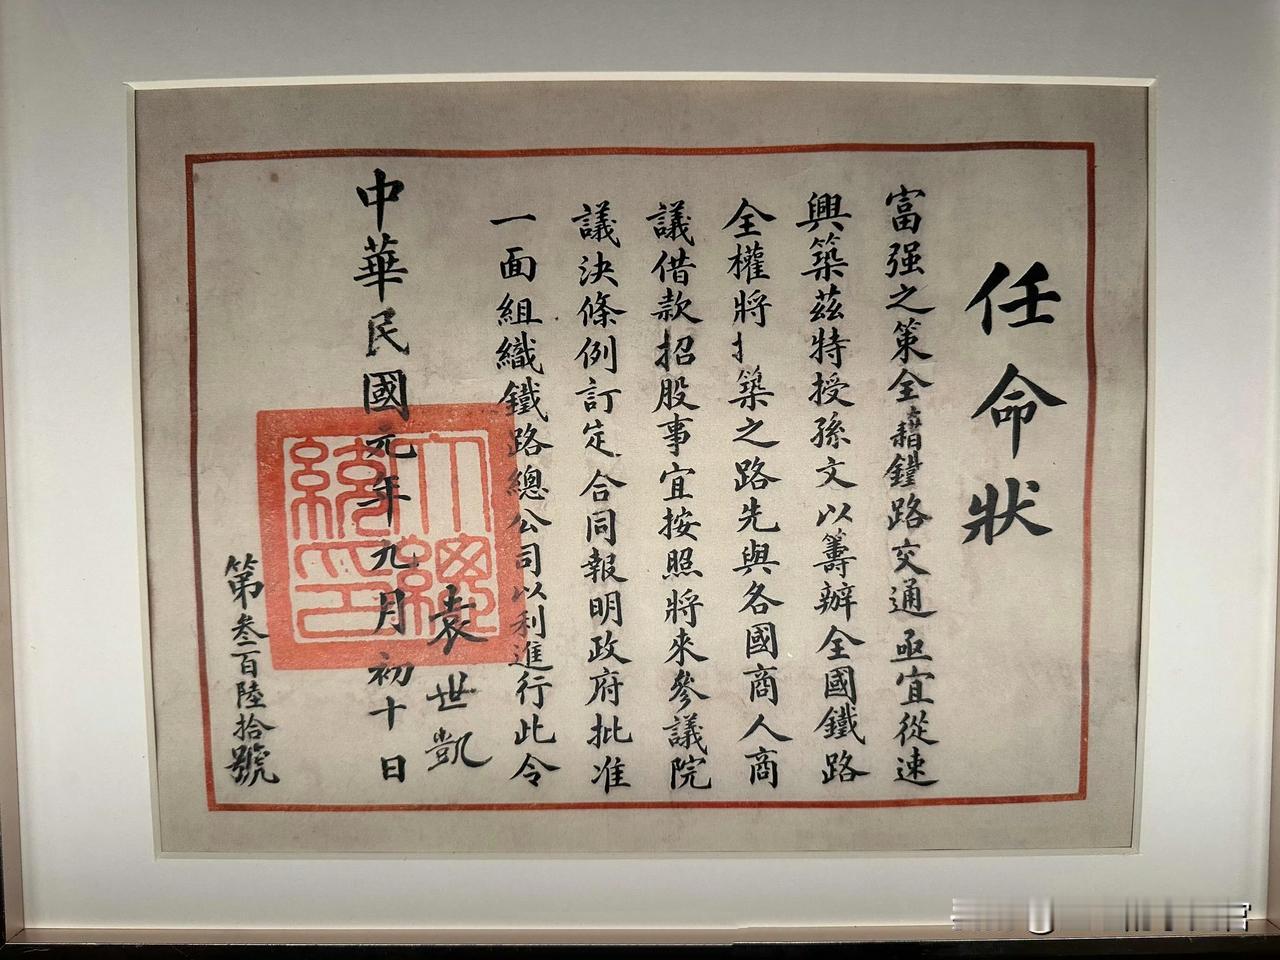 任命狀
富强之策全藉鐵路交通亟宜從速
興築茲特授孫文以籌辦全國鐵路
全權將築之路先與各國商人商
議借款招股事宜按照將來參議院
議決條例訂定合同報明政府批准
一面組織鐵路總公司以利進行此令
袁世凱
中華民國元年九月初十日
第叁百陸拾號
大總統印